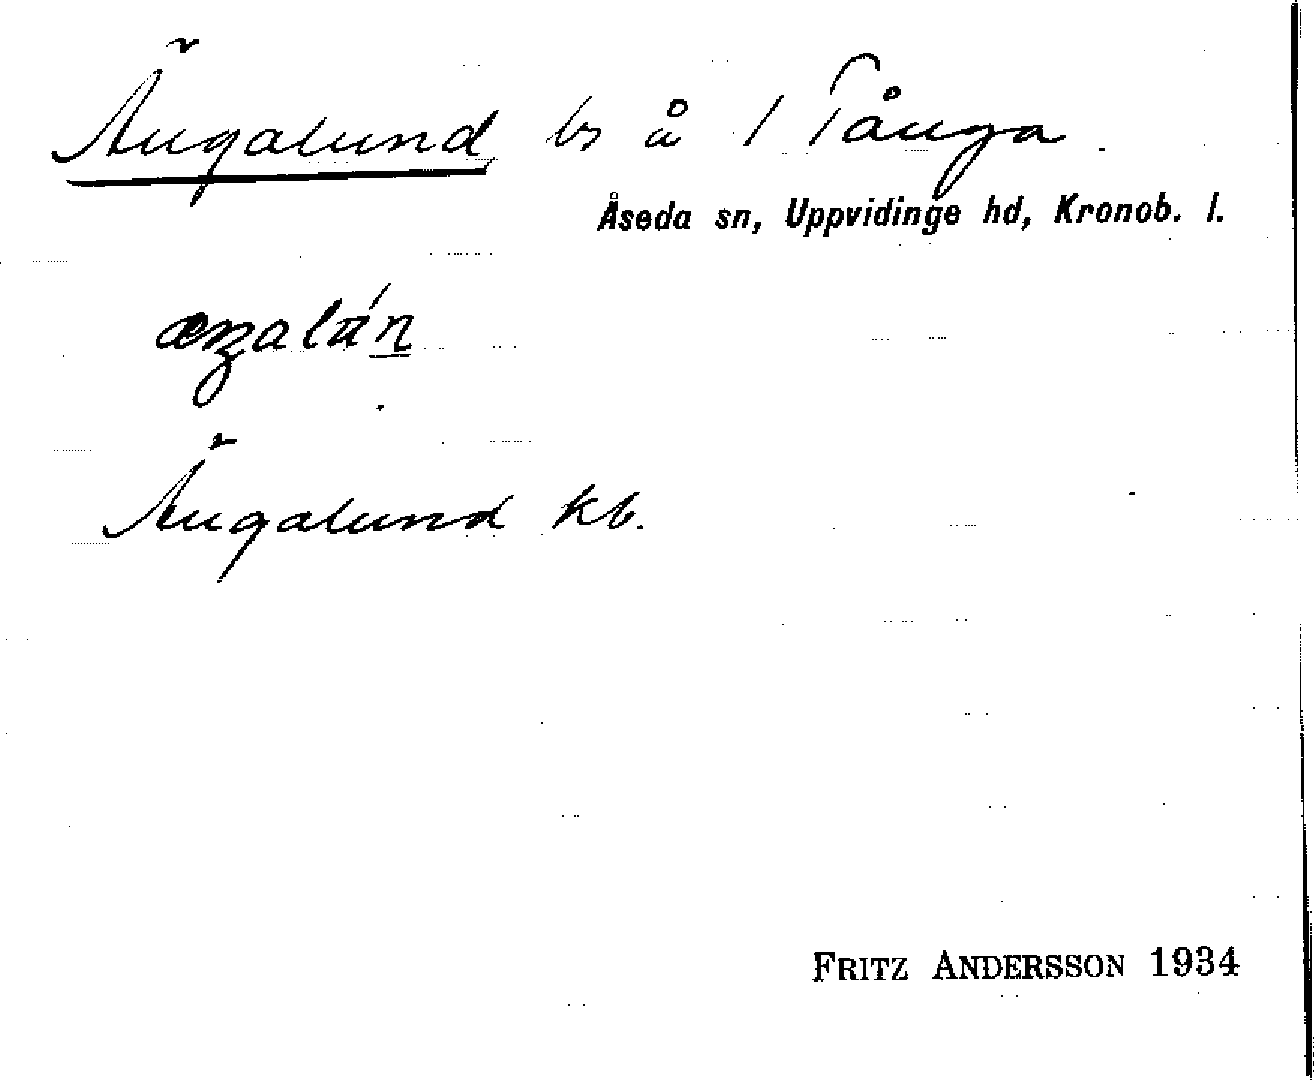 Ängalund ls å 1 Tånga.
Åseda sn, Uppvidinge hd, Kronob. l.
Ängalund kb.
FRITZ ANDERSSON 1934